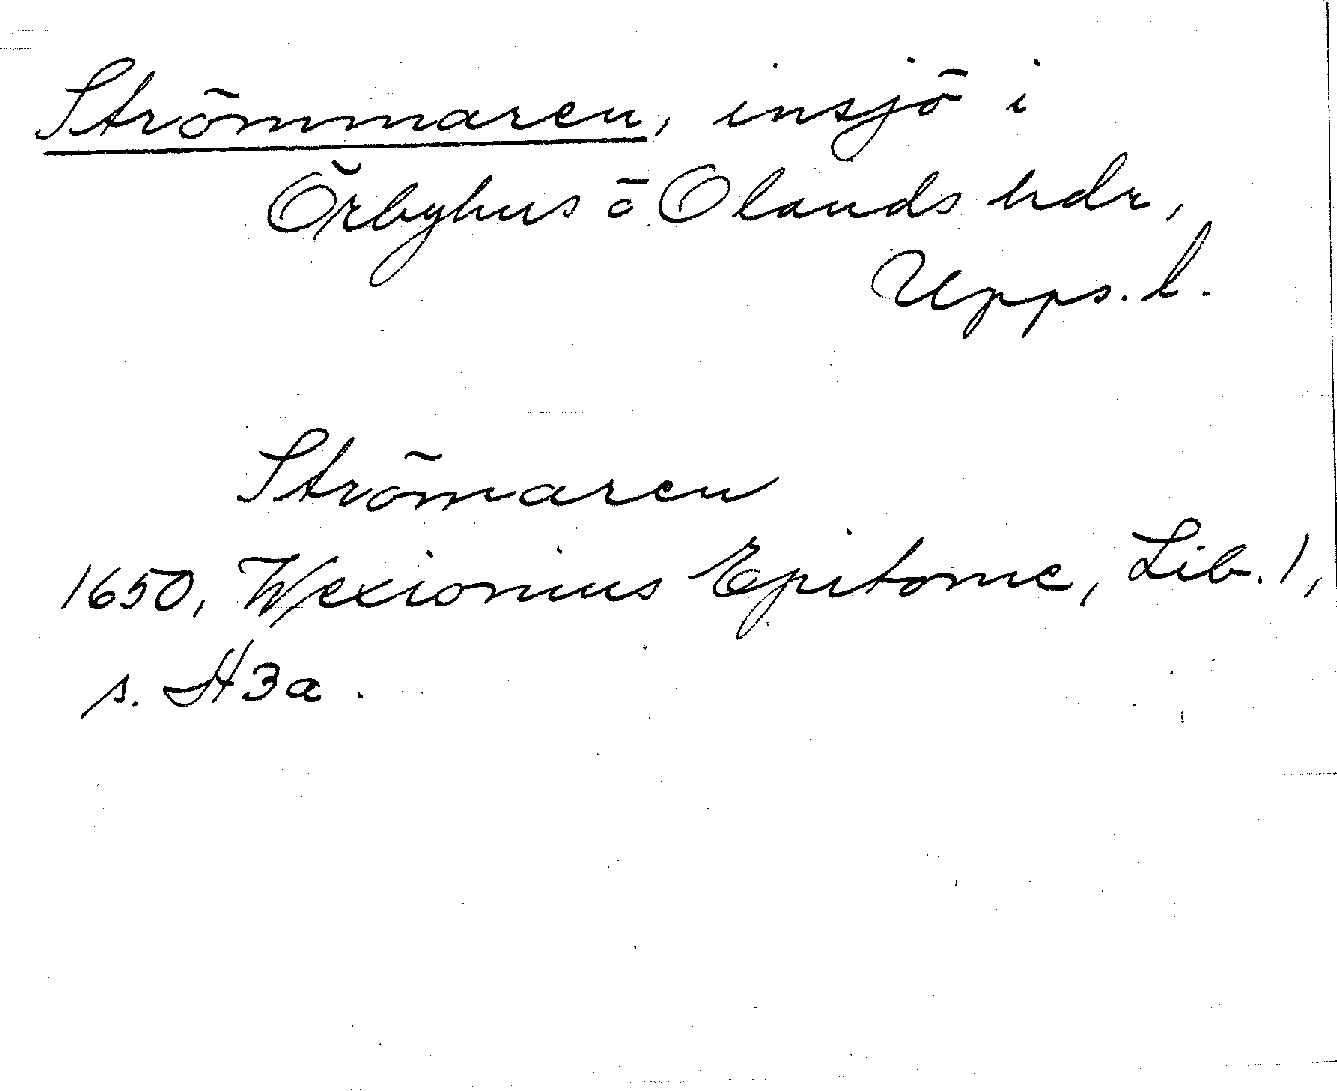 Strömmaren, insjö i
Örbyhus o Olands hdr,
Upps. l.
Strömaren
1650, Wexionius Epitome, Lib. 1,
s. H3a.